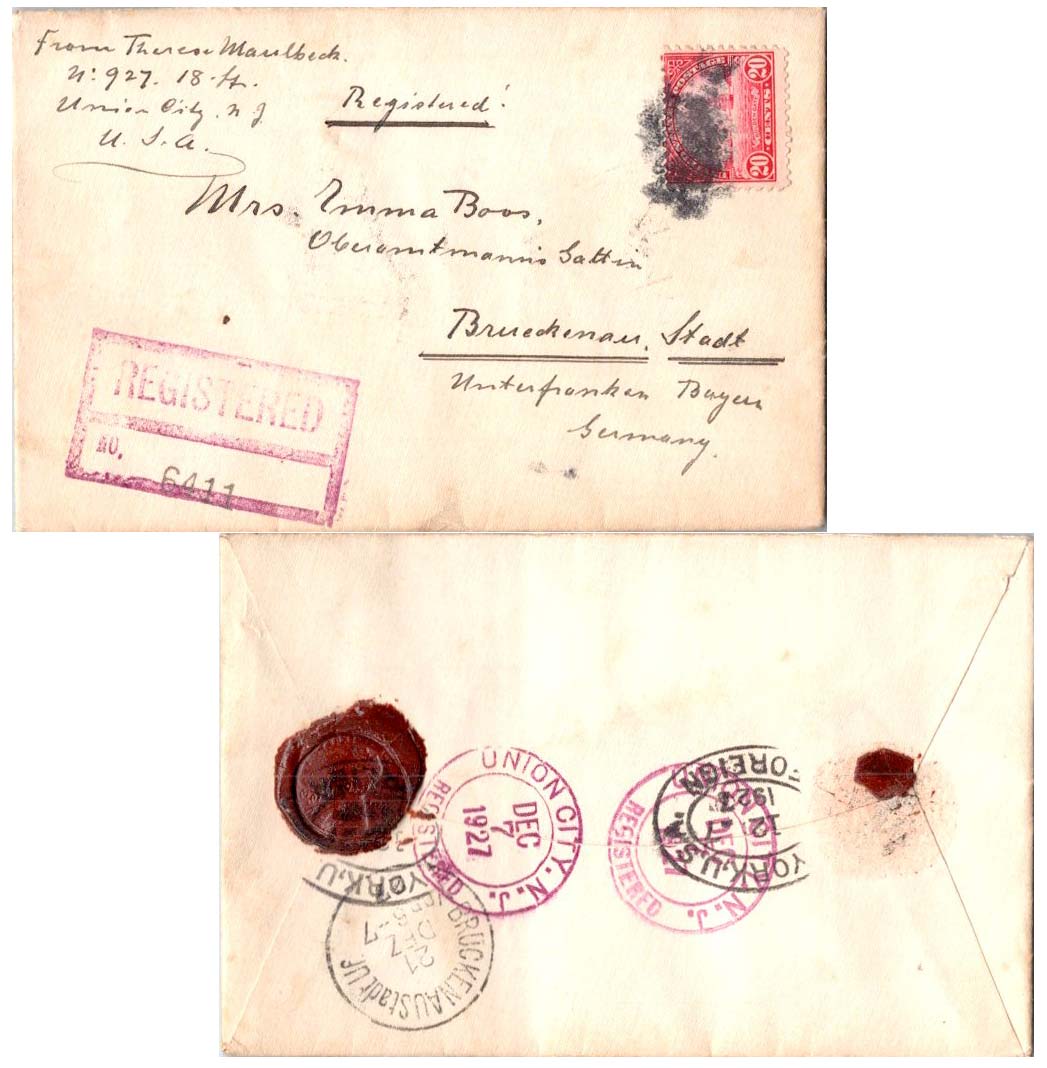 From Therese Maulbeck.
No: 927. 18. St.
Union City. N. J.
U. S. A.
Registered!
20 CENTS 20
Mrs. Emma Boos,
Oberamtmanns Gattin
Brueckenau. Stadt
Unterfranken Bayern
Germany.
REGISTERED
NO.
6411
UNION CITY, N. J.
DEC
7
1927
REGISTERED
UNION CITY, N. J.
DEC
7
REGISTERED
YORK, U.S.A.
12
7
1927
FOREIGN
YORK, U
BRÜCKENAU Stadt UF.
27
DEZ